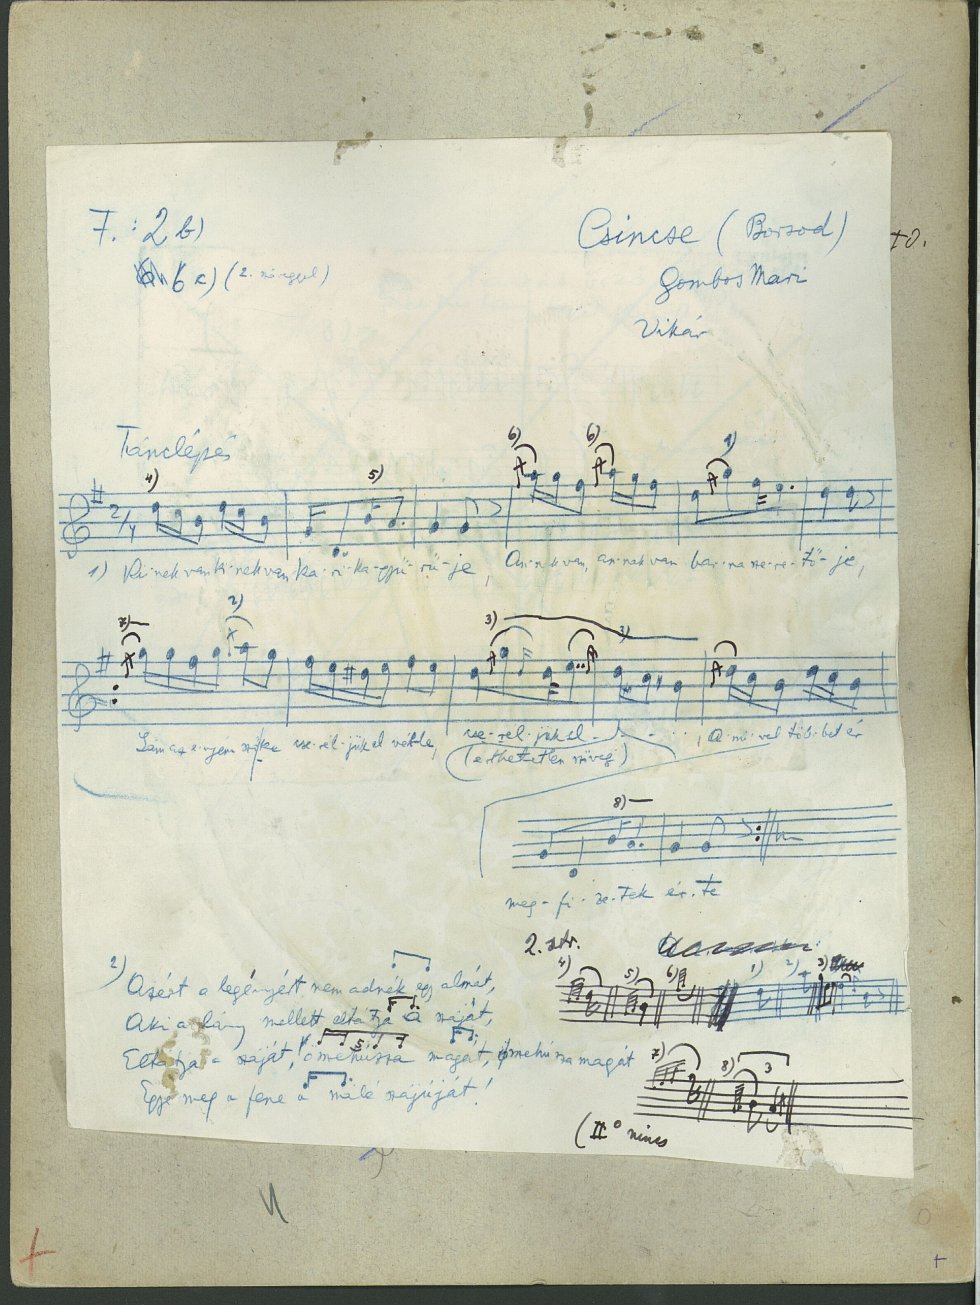 7. : 2 b)
6 c) (2.
Csincse (Borsod)
Gombos Mari
Vikár
Tánclépés
4) 5) 6) 6) 1)
2/4
1) Ki-nek van ki-nek van ka-ri-ka-gyű-rű-je, An-nak van, an-nak van bar-na sze-re-tő-je,
7) 2) 3)
sze-rel-jük el vet-te, sze-rel-jük el - , A-mi-vel töb-bet ér
(Érthetetlen szöveg)
8)
meg-fi-ze-tek ér-te
2. str.
4) 5) 6) 1) 2) 3)
2) Azért a legényért nem adnék egy almát,
Aki a lány mellett eltátja a száját,
Eltátja a száját, őmehúzza magát, őmehúzza magát
5
Egye meg a fene a málé szájúját!
7) 8) 3
(II° nincs